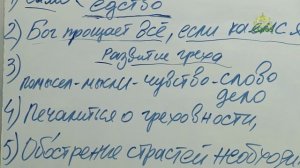 едство
2) Бог прощает всё, если каемся
Развитие греха
3)
помысел-мысли-чувство-слово
дело
4) Печалится о греховности,
5) Обострение страстей необходи